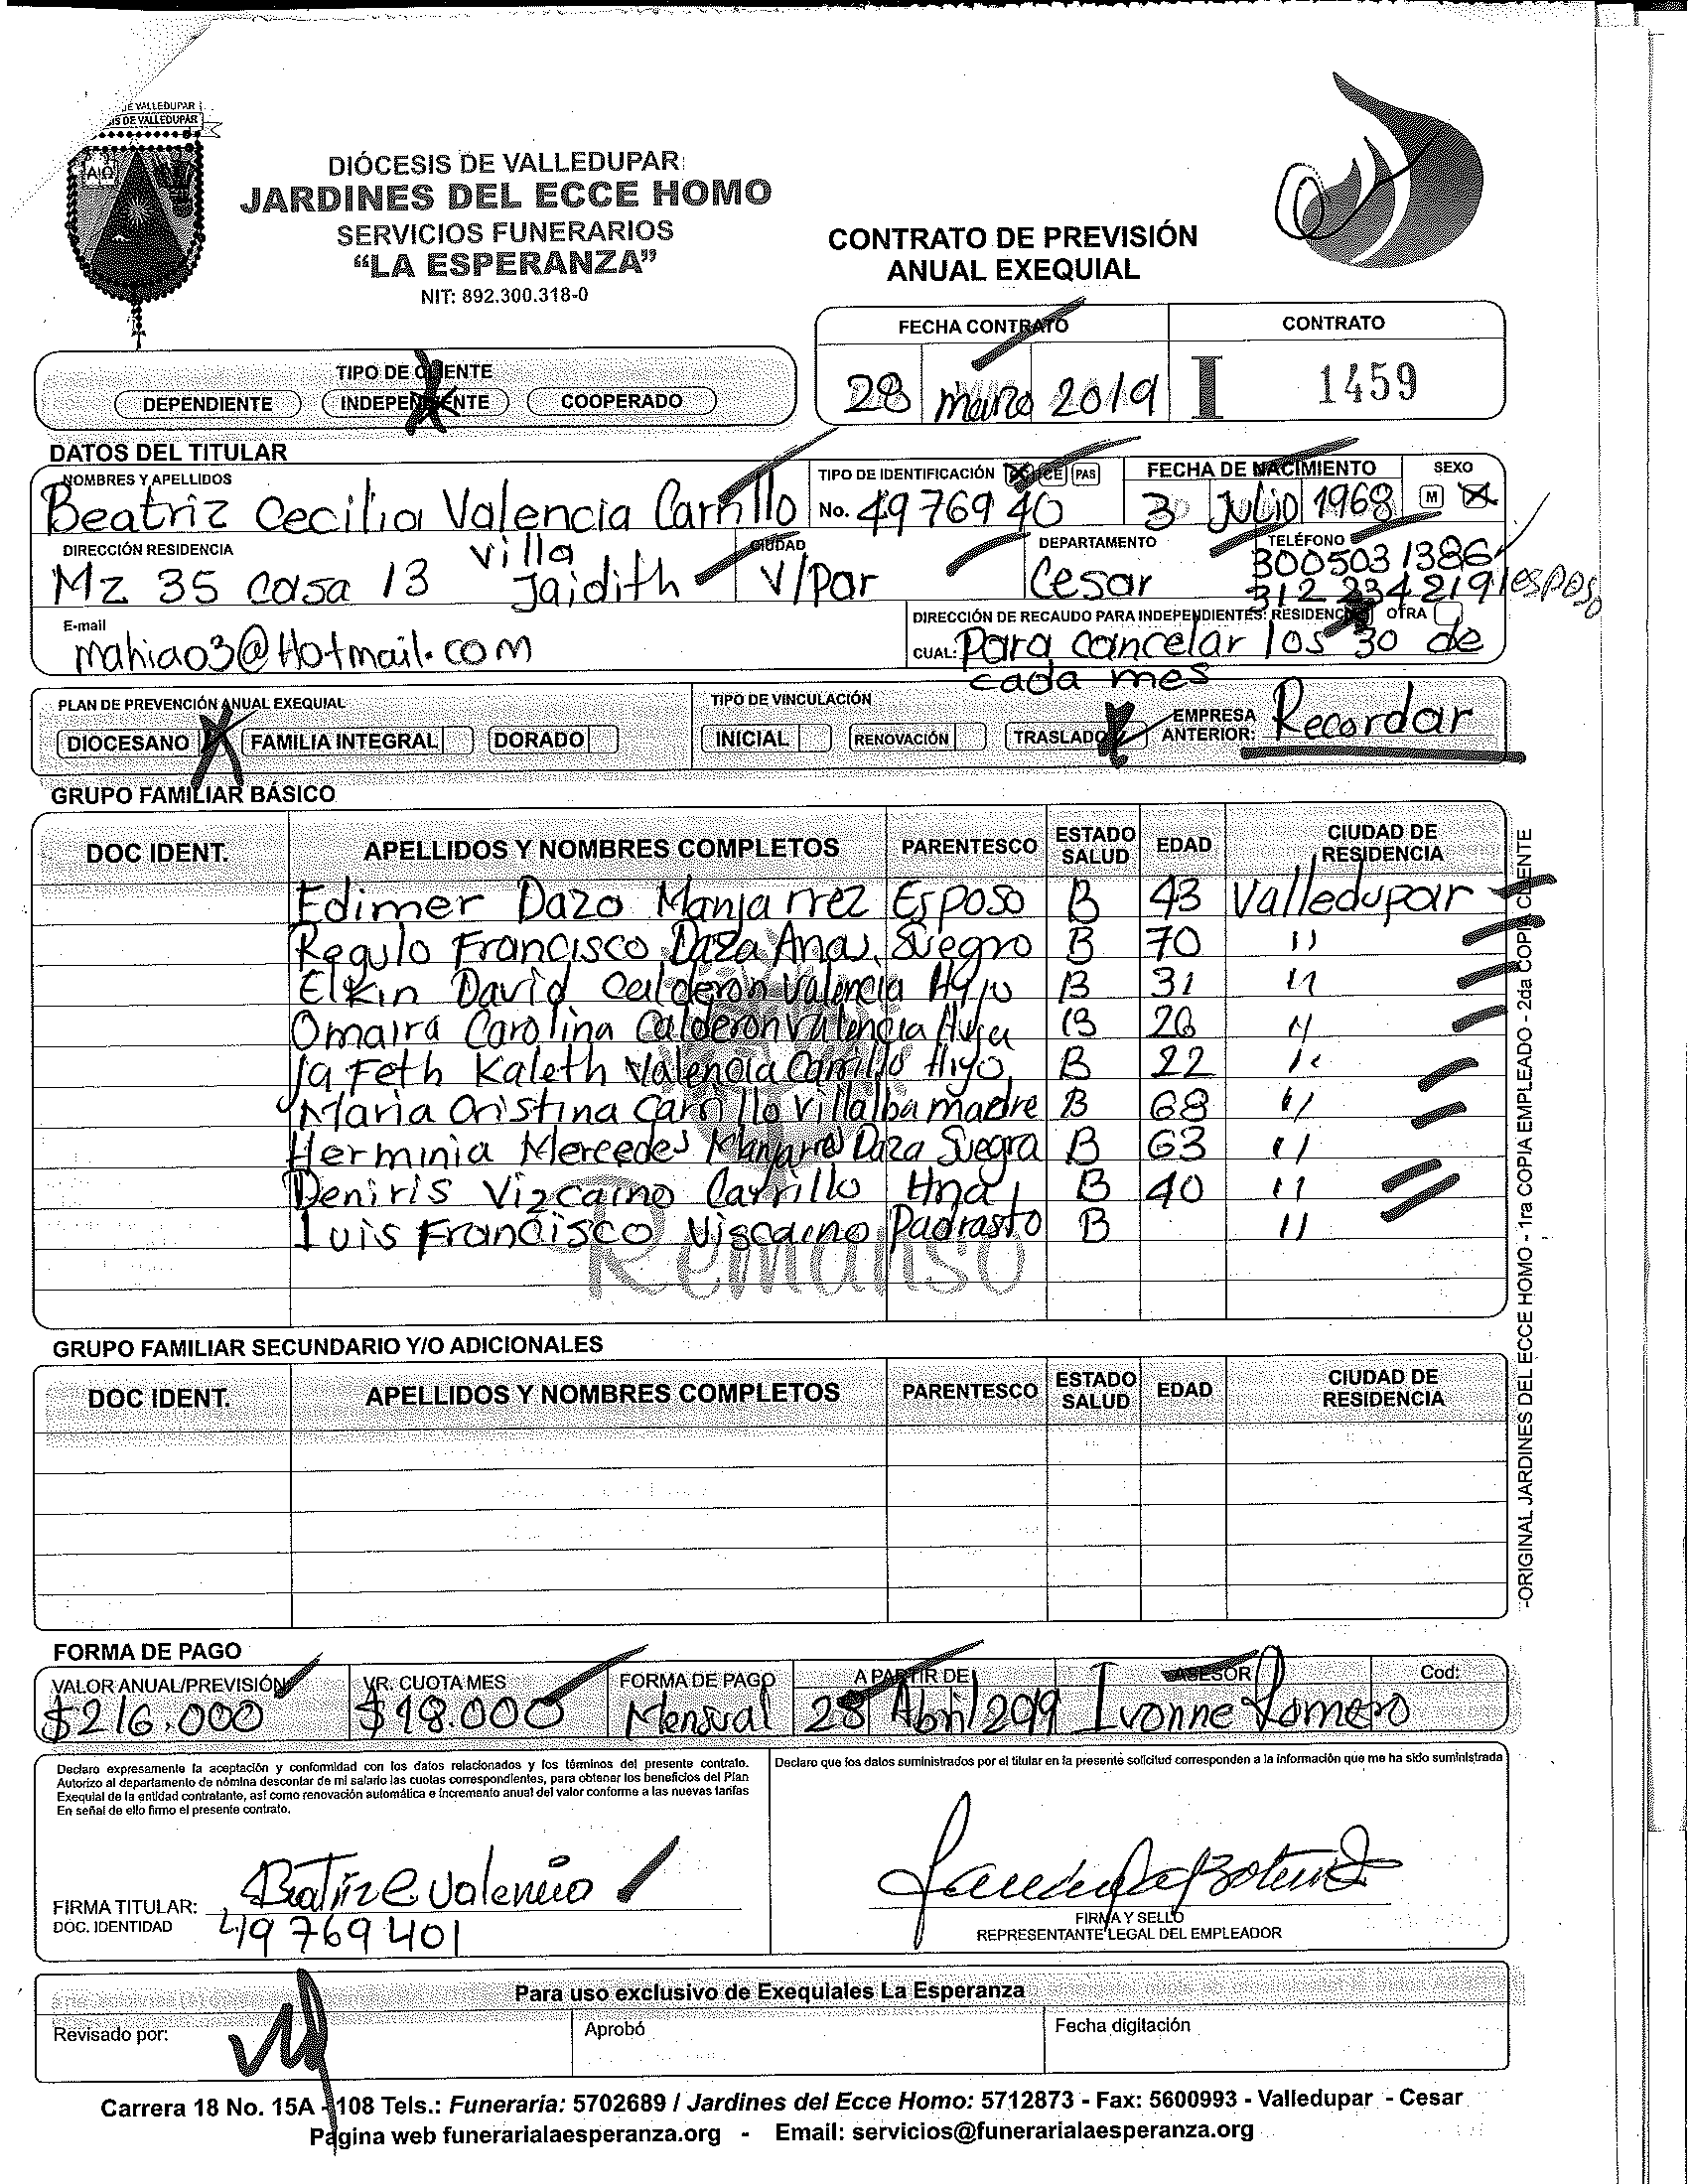 DE VALLEDUPAR
IS DE VALLEDUPAR
A Ω
DIÓCESIS DE VALLEDUPAR
JARDINES DEL ECCE HOMO
SERVICIOS FUNERARIOS
“LA ESPERANZA”
NIT: 892.300.318-0
CONTRATO DE PREVISIÓN
ANUAL EXEQUIAL
FECHA CONTRATO
CONTRATO
28 marzo 2019
I 1459
TIPO DE CLIENTE
DEPENDIENTE INDEPENDIENTE COOPERADO
DATOS DEL TITULAR
NOMBRES Y APELLIDOS
Beatriz Cecilia Valencia Carrillo
TIPO DE IDENTIFICACIÓN CE PAS
No. 49769 40
FECHA DE NACIMIENTO
3 Julio 1968
SEXO
M
DIRECCIÓN RESIDENCIA
Mz 35 casa 13 Villa
Jaidith
CIUDAD
V/Par
DEPARTAMENTO
Cesar
TELÉFONO
3005031386
312 2342191 esposo
E-mail
mahia03@Hotmail.com
DIRECCIÓN DE RECAUDO PARA INDEPENDIENTES: RESIDENCIA OTRA
CUAL: Para cancelar los 30 de
cada mes
PLAN DE PREVENCIÓN ANUAL EXEQUIAL
DIOCESANO FAMILIA INTEGRAL DORADO
TIPO DE VINCULACIÓN
INICIAL RENOVACIÓN TRASLADO
EMPRESA
ANTERIOR: Recordar
GRUPO FAMILIAR BÁSICO
DOC IDENT. APELLIDOS Y NOMBRES COMPLETOS PARENTESCO ESTADO SALUD EDAD CIUDAD DE RESIDENCIA
Edimer Dazo Manjarrez Esposo B 43 Valledupar
Regulo Francisco Daza Arias Suegro B 70 11
Elkin David Calderon Valencia Hijo B 31 11
Omaira Carolina Calderon Valencia Hija B 26 11
Jafeth Kaleth Valencia Carrillo Hijo B 22 11
Maria Cristina Carrillo Villalba madre B 68 11
Herminia Mercedes Manjarres Daza Suegra B 63 11
Deniris Vizcaino Carrillo Hna B 40 11
Luis Francisco Viscaino Padrasto B 11
Remanso
GRUPO FAMILIAR SECUNDARIO Y/O ADICIONALES
DOC IDENT. APELLIDOS Y NOMBRES COMPLETOS PARENTESCO ESTADO SALUD EDAD CIUDAD DE RESIDENCIA
-ORIGINAL JARDINES DEL ECCE HOMO - 1ra COPIA EMPLEADO - 2da COPIA CLIENTE
FORMA DE PAGO
VALOR ANUAL/PREVISIÓN VR. CUOTA MES FORMA DE PAGO A PARTIR DE ASESOR Cod:
$216.000 $18.000 Mensual 28 Abril 2019 Ivonne Romero
Declaro expresamente la aceptación y conformidad con los datos relacionados y los términos del presente contrato.
Autorizo al departamento de nómina descontar de mi salario las cuotas correspondientes, para obtener los beneficios del Plan
Exequial de la entidad contratante, así como renovación automática e incremento anual del valor conforme a las nuevas tarifas
En señal de ello firmo el presente contrato.
Declaro que los datos suministrados por el titular en la presente solicitud corresponden a la información que me ha sido suministrada
FIRMA TITULAR: Beatriz c valencia
DOC. IDENTIDAD 49769401
FIRMA Y SELLO
REPRESENTANTE LEGAL DEL EMPLEADOR
Para uso exclusivo de Exequiales La Esperanza
Revisado por: Aprobó Fecha digitación
Carrera 18 No. 15A - 108 Tels.: Funeraria: 5702689 / Jardines del Ecce Homo: 5712873 - Fax: 5600993 - Valledupar - Cesar
Página web funerarialaesperanza.org - Email: servicios@funerarialaesperanza.org